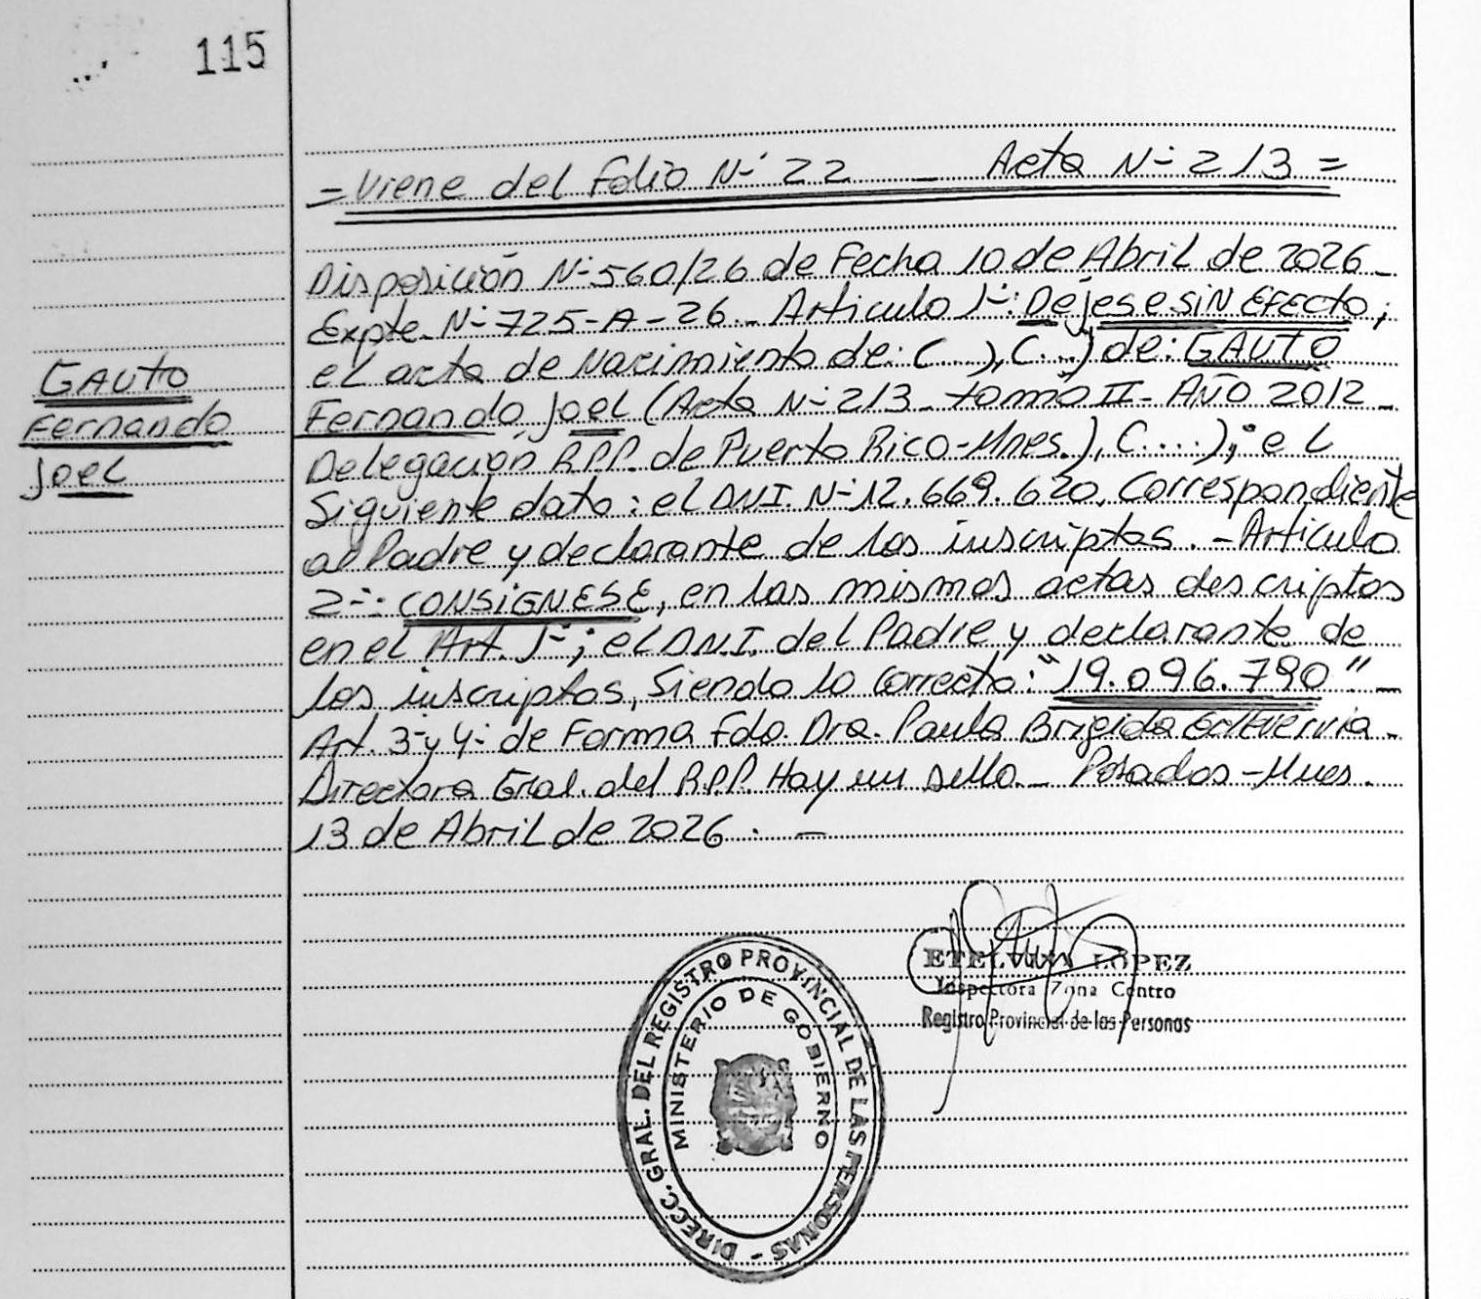 115
= Viene del folio N° 22 _ Acta N° 213 =
Disposición N° 560/26 de Fecha 10 de Abril de 2026 _
Expte N° 725-A-26 _ Articulo 1°: Déjese sin EFECTO;
el acta de Nacimiento de: (...), (...) de: GAUTO
Fernando Joel (Acta N° 213 _ tomo II - AÑO 2012 _
Delegación R.P.P. de Puerto Rico - Mnes.), (....); el
Siguiente dato: el DNI. N° 12.669.620, Correspondiente
al Padre y declarante de los inscriptos. - Articulo
2°: CONSIGNESE, en las mismas actas descriptas
en el Art. 1°; el DNI. del Padre y declarante de
los inscriptos, Siendo lo correcto: "19.096.790" _
Art. 3° y 4° de Forma Fdo. Dra. Paula Brigida Echeverria _
Directora Gral. del R.P.P. Hay un sello _ Posadas - Mnes.
13 de Abril de 2026. _
GAUTO
Fernando
Joel
ETELVINA LOPEZ
Inspectora Zona Centro
Registro Provincial de las Personas
DIRECC. GRAL. DEL REGISTRO PROVINCIAL DE LAS PERSONAS -
MINISTERIO DE GOBIERNO